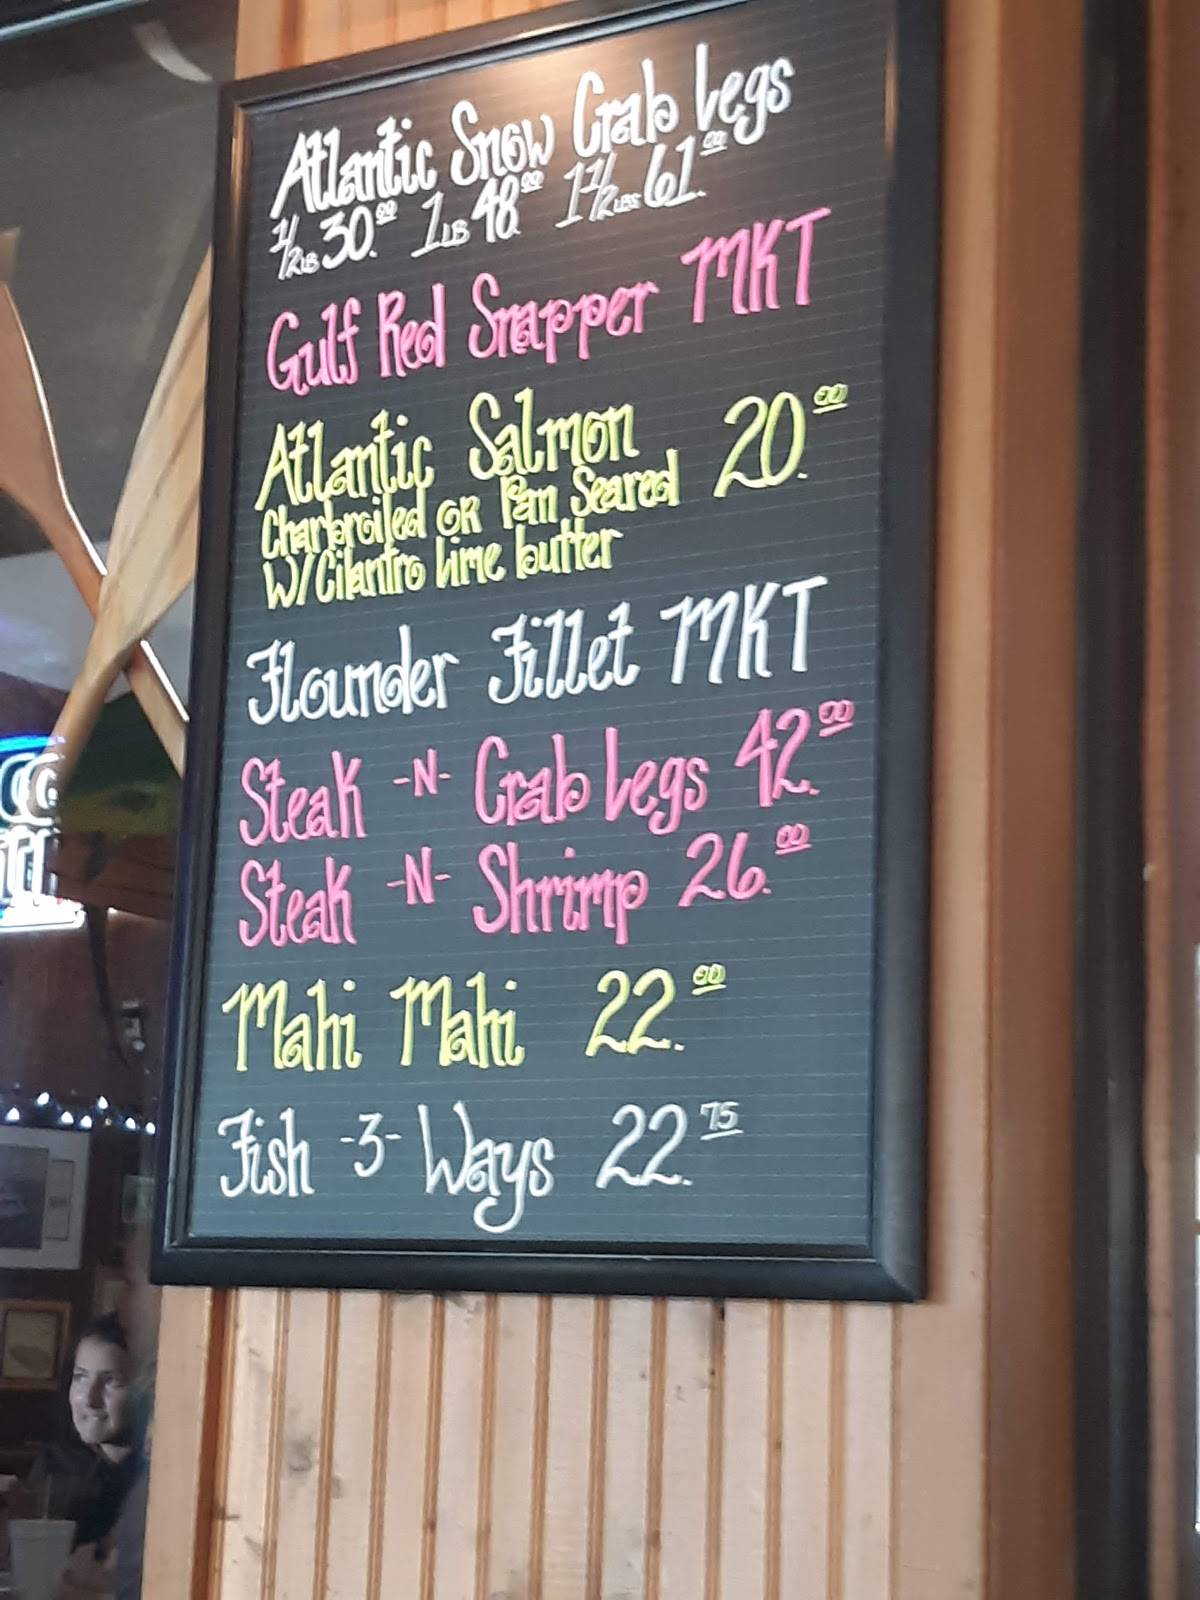 Atlantic Snow Crab Legs
1/2 LB 30.00 1 LB 48.00 1 1/2 LBS 61.00
Gulf Red Snapper MKT
Atlantic Salmon 20.00
Charbroiled OR Pan Seared
W/Cilantro lime butter
Flounder Fillet MKT
Steak -N- Crab Legs 42.00
Steak -N- Shrimp 26.00
Mahi Mahi 22.00
Fish -3- Ways 22.75